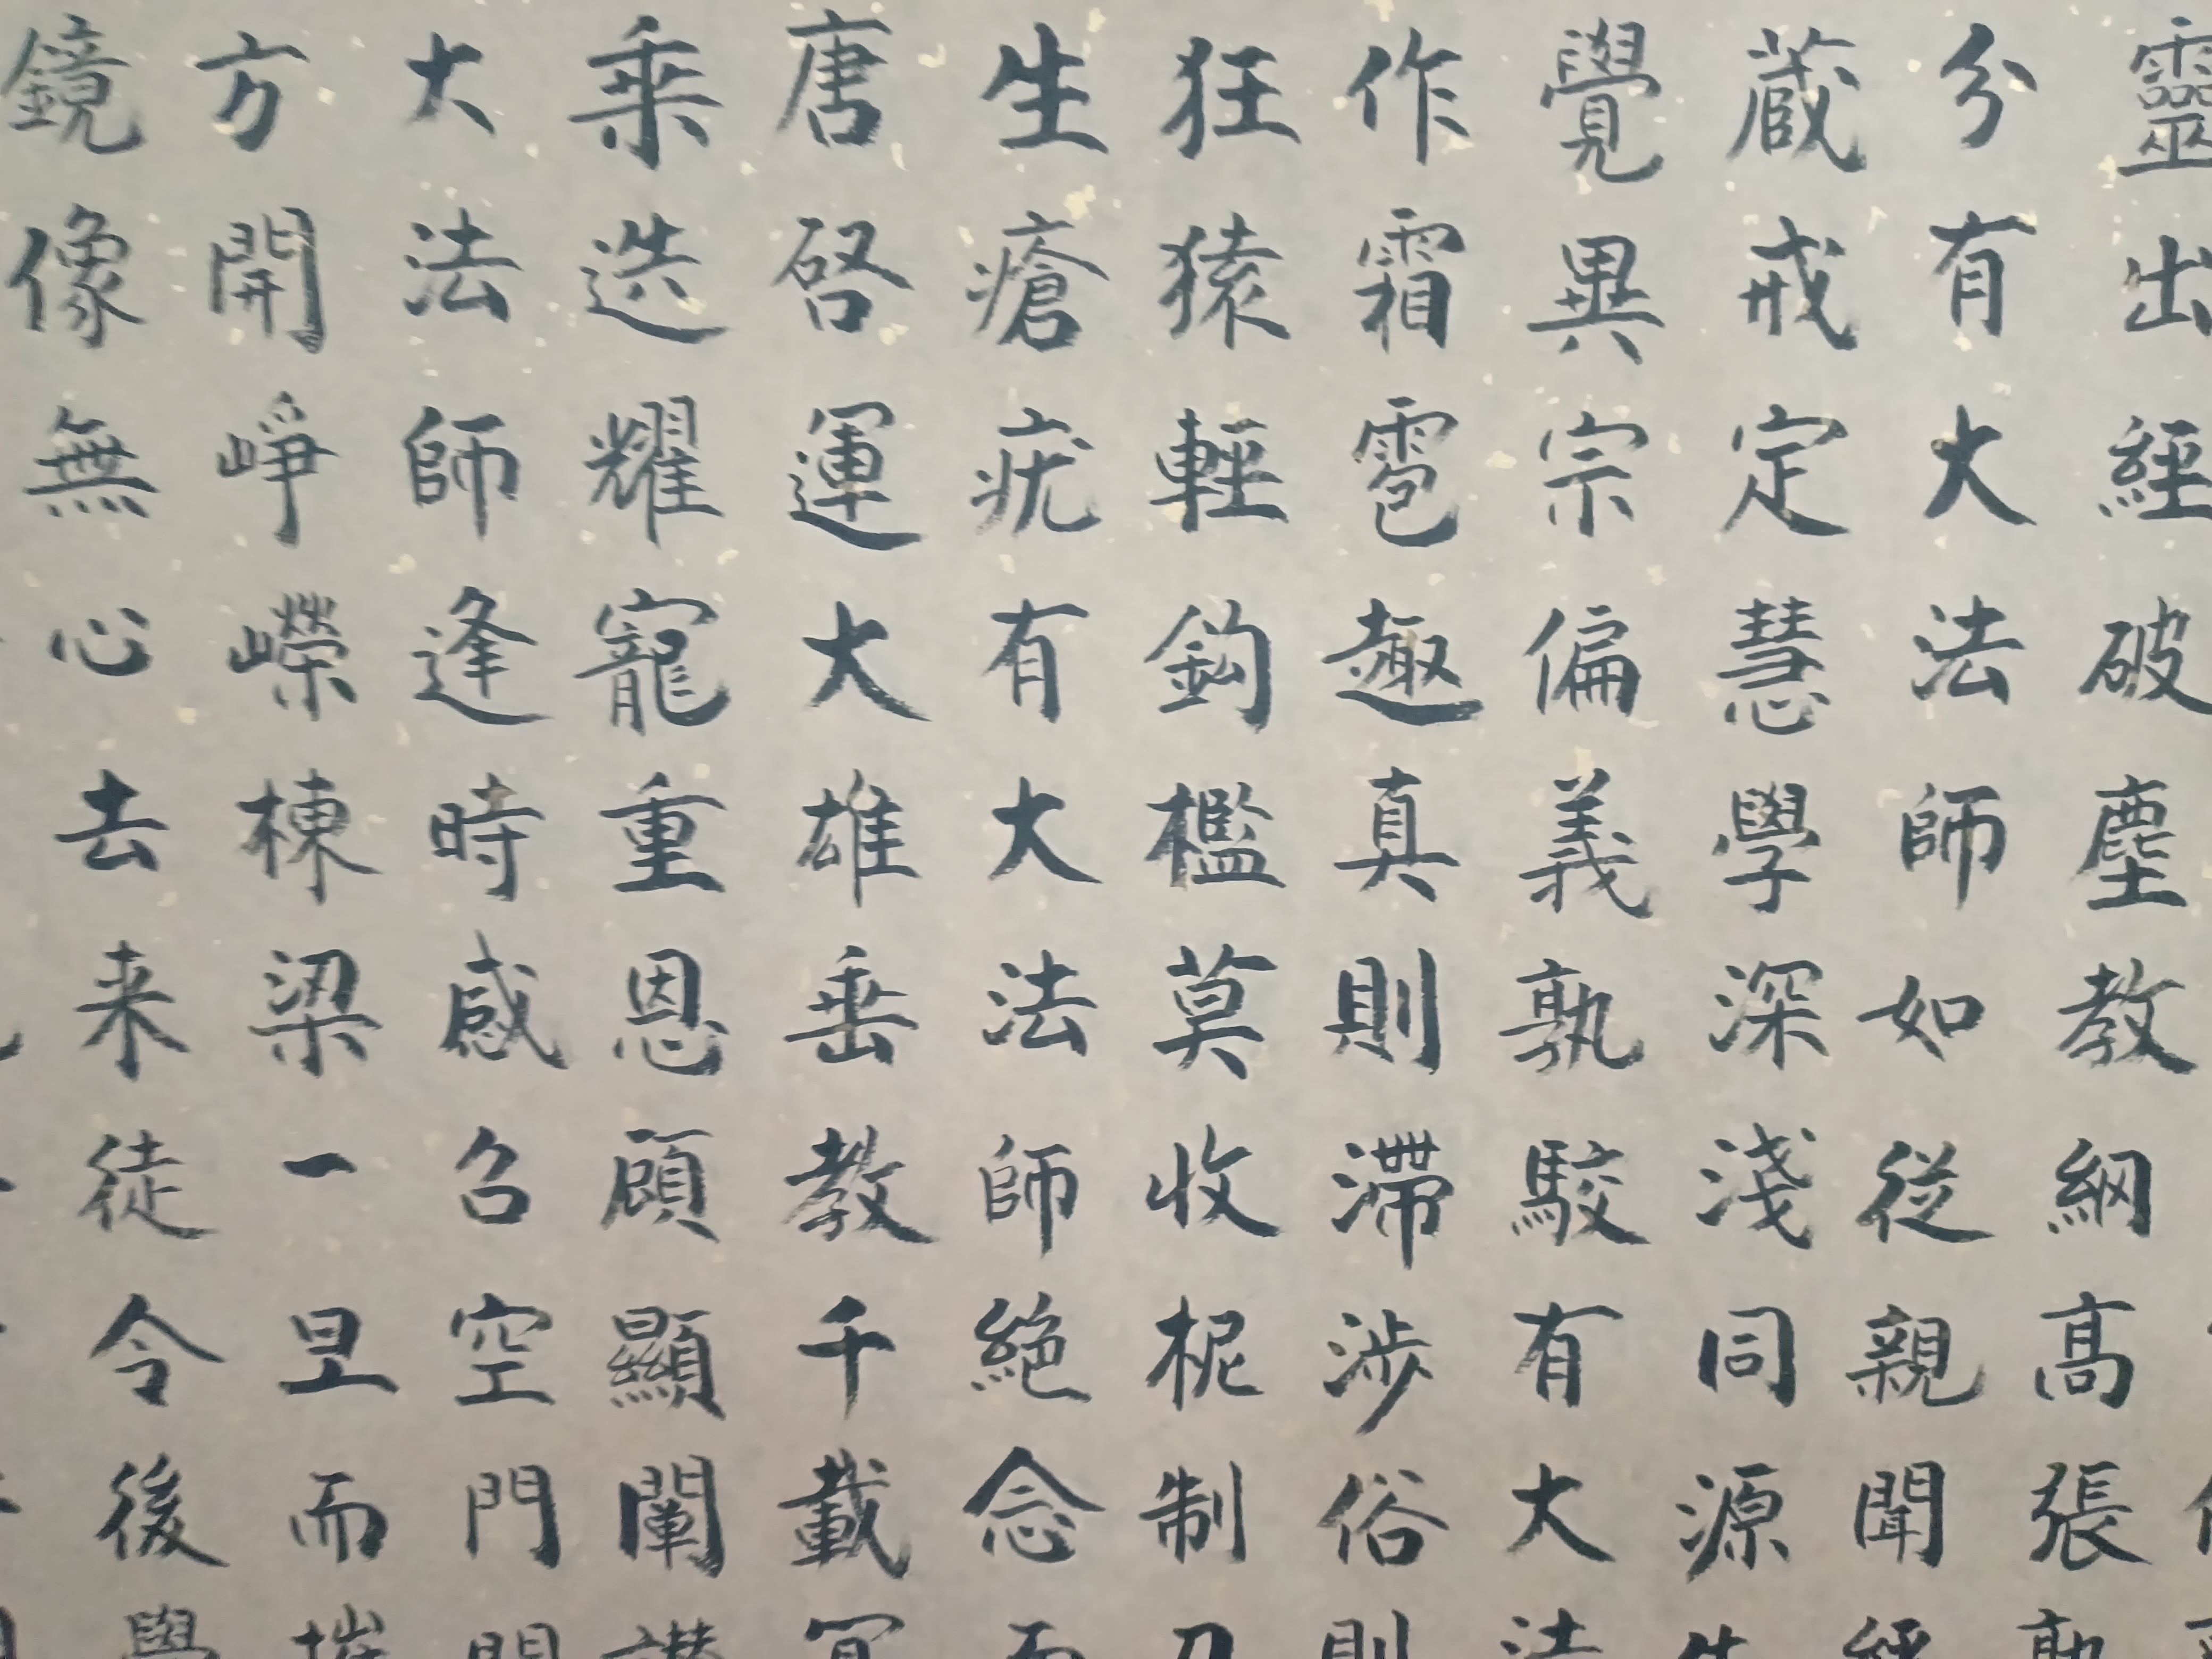 靈出經破塵教網高張
分有大法師如從親聞經
蔵戒定慧學深淺同源
覺異宗偏義孰駮有大法
作霜雹趣真則滯涉俗則
狂猿輕鈎檻莫收柅制刀
生瘡疣有大法師絕念而
唐啓運大雄垂教千載冥
乘迭耀寵重恩顧顯闡讚
大法師逢時感召空門
方開崢嶸棟梁一旦而摧
鏡像無心去来徒令後學